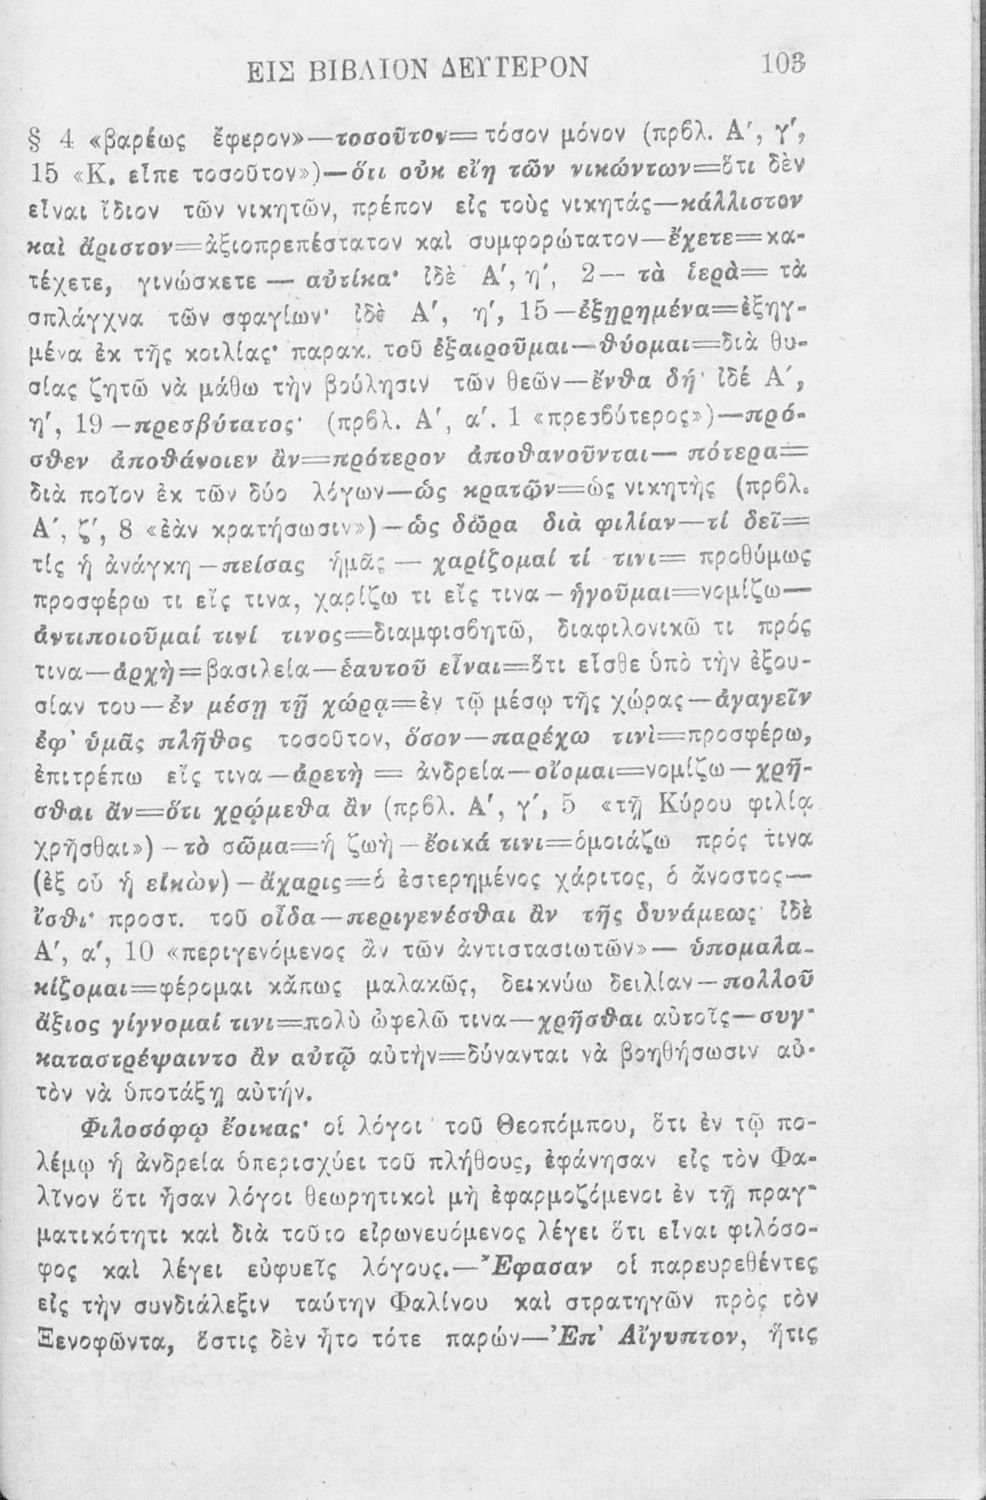 ΕΙΣ ΒΙΒΛΙΟΝ ΔΕΥΤΕΡΟΝ 103
§ 4 «βαρέως ἔφερον»—τοσοῦτον=τόσον μόνον (πρβλ. Α′, γ′,
15 «Κ. εἶπε τοσοῦτον»)—ὅτι οὐκ εἴη τῶν νικώντων=ὅτι δὲν
εἶναι ἴδιον τῶν νικητῶν, πρέπον εἰς τοὺς νικητάς—κάλλιστον
καὶ ἄριστον=ἀξιοπρεπέστατον καὶ συμφορώτατον—ἔχετε=κα-
τέχετε, γινώσκετε — αὐτίκα· ἰδὲ Α′, η′, 2— τὰ ἱερὰ= τὰ
σπλάγχνα τῶν σφαγίων· ἰδὲ Α′, η′, 15—ἐξῃρημένα=ἐξηγ-
μένα ἐκ τῆς κοιλίας· παρακ. τοῦ ἐξαιροῦμαι—θύομαι=διὰ θυ-
σίας ζητῶ νὰ μάθω τὴν βούλησιν τῶν θεῶν—ἔνθα δή· ἰδέ Α′,
η′, 19—πρεσβύτατος· (πρβλ. Α′, α′. 1 «πρεσβύτερος»)—πρό-
σθεν ἀποθάνοιεν ἂν=πρότερον ἀποθανοῦνται— πότερα=
διὰ ποῖον ἐκ τῶν δύο λόγων—ὡς κρατῶν=ὡς νικητὴς (πρβλ.
Α′, ζ′, 8 «ἐὰν κρατήσωσιν»)—ὡς δῶρα διὰ φιλίαν—τί δεῖ=
τίς ἡ ἀνάγκη—πείσας ἡμᾶς — χαρίζομαί τί τινι= προθύμως
προσφέρω τι εἴς τινα, χαρίζω τι εἴς τινα—ἡγοῦμαι=νομίζω—
ἀντιποιοῦμαί τινί τινος=διαμφισβητῶ, διαφιλονικῶ τι πρός
τινα—ἀρχὴ=βασιλεία—ἑαυτοῦ εἶναι=ὅτι εἶσθε ὑπὸ τὴν ἐξου-
σίαν του—ἐν μέσῃ τῇ χώρᾳ=ἐν τῷ μέσῳ τῆς χώρας—ἀγαγεῖν
ἐφ' ὑμᾶς πλῆθος τοσοῦτον, ὅσον—παρέχω τινὶ=προσφέρω,
ἐπιτρέπω εἴς τινα—ἀρετὴ = ἀνδρεία—οἴομαι=νομίζω—χρῆ-
σθαι ἄν=ὅτι χρῴμεθα ἂν (πρβλ. Α′, γ′, 5 «τῇ Κύρου φιλίᾳ
χρῆσθαι»)—τὸ σῶμα=ἡ ζωὴ—ἔοικά τινι=ὁμοιάζω πρός τινα
(ἐξ οὗ ἡ εἰκὼν)—ἄχαρις=ὁ ἐστερημένος χάριτος, ὁ ἄνοστος—
ἴσθι· προστ. τοῦ οἶδα—περιγενέσθαι ἂν τῆς δυνάμεως· ἰδὲ
Α′, α′, 10 «περιγενόμενος ἂν τῶν ἀντιστασιωτῶν»— ὑπομαλα-
κίζομαι=φέρομαι κἄπως μαλακῶς, δεικνύω δειλίαν—πολλοῦ
ἄξιος γίγνομαί τινι=πολὺ ὠφελῶ τινα—χρῆσθαι αὐτοῖς—συγ-
καταστρέψαιντο ἂν αὐτῷ αὐτὴν=δύνανται νὰ βοηθήσωσιν αὐ-
τὸν νὰ ὑποτάξῃ αὐτήν.
Φιλοσόφῳ ἔοικας· οἱ λόγοι τοῦ Θεοπόμπου, ὅτι ἐν τῷ πο-
λέμῳ ἡ ἀνδρεία ὑπερισχύει τοῦ πλήθους, ἐφάνησαν εἰς τὸν Φα-
λῖνον ὅτι ἦσαν λόγοι θεωρητικοὶ μὴ ἐφαρμοζόμενοι ἐν τῇ πραγ-
ματικότητι καὶ διὰ τοῦτο εἰρωνευόμενος λέγει ὅτι εἶναι φιλόσο-
φος καὶ λέγει εὐφυεῖς λόγους.—Ἔφασαν οἱ παρευρεθέντες
εἰς τὴν συνδιάλεξιν ταύτην Φαλίνου καὶ στρατηγῶν πρὸς τὸν
Ξενοφῶντα, ὅστις δὲν ἦτο τότε παρών—Ἐπ' Αἴγυπτον, ἥτις